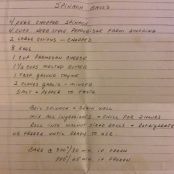 SPINACH BALLS
4 PKGS CHOPPED SPINACH
4 CUPS HERB STYLE PEPPERIDGE FARM STUFFING
2 LARGE ONIONS - CHOPPED
8 EGGS
1 CUP PARMESAN CHEESE
1½ CUPS MELTED BUTTER
1 TBSP GROUND THYME
2 CLOVES GARLIC - MINCED
SALT + PEPPER TO TASTE
BOIL SPINACH - DRAIN WELL
MIX ALL INGREDIENTS - CHILL FOR 2 HOURS
ROLL INTO WALNUT SIZED BALLS - REFRIGERATE
OR FREEZE UNTIL READY TO USE
BAKE @ 300°/30 MIN. IF FRESH
300°/45 MIN. IF FROZEN